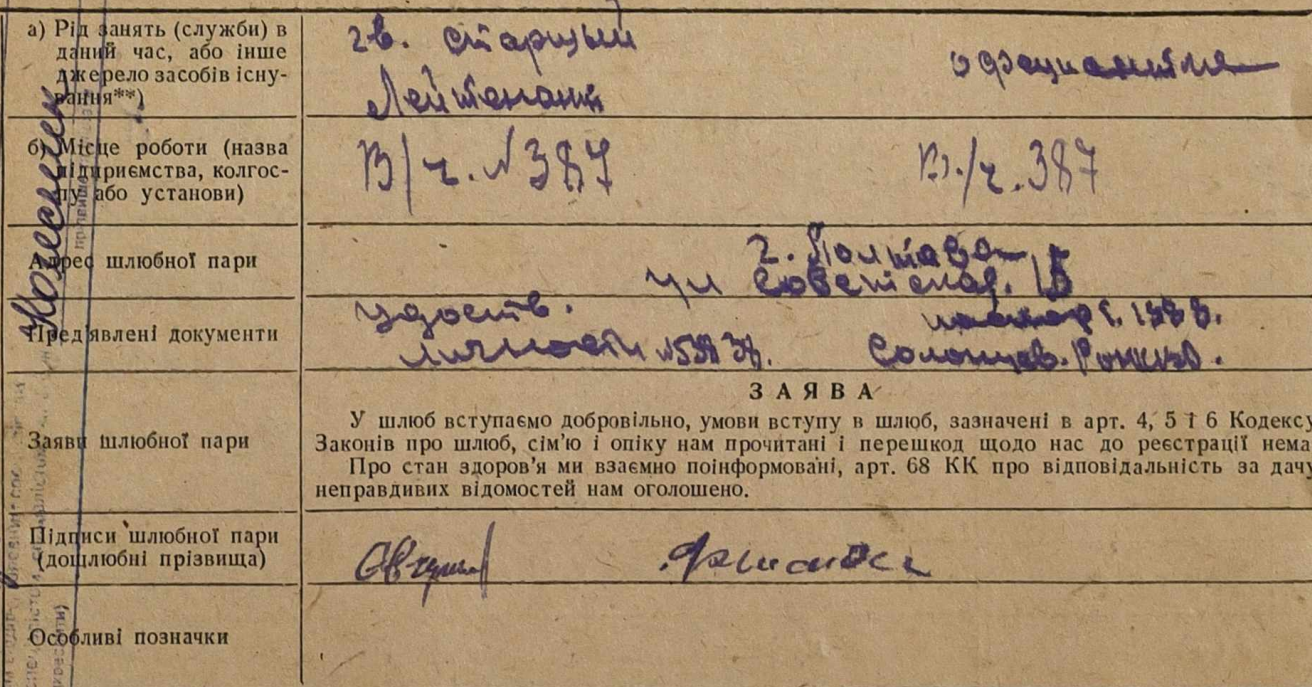 а) Рід занять (служби) в
даний час, або інше
джерело засобів існу-
вання**)
гв. старший
Лейтенант
официантка
б) Місце роботи (назва
підприємства, колгос-
пу або установи)
В/ч. №387
В/ч. 387
Адрес шлюбної пари
г. Полтава
ул Советская. 15
Пред'явлені документи
удоств.
личности
Заяви шлюбної пари
ЗАЯВА
У шлюб вступаємо добровільно, умови вступу в шлюб, зазначені в арт. 4, 5 і 6 Кодексу
Законів про шлюб, сім'ю і опіку нам прочитані і перешкод щодо нас до реєстрації нема
Про стан здоров'я ми взаємно поінформовані, арт. 68 КК про відповідальність за дачу
неправдивих відомостей нам оголошено.
Підписи шлюбної пари
(дошлюбні прізвища)
Особливі позначки